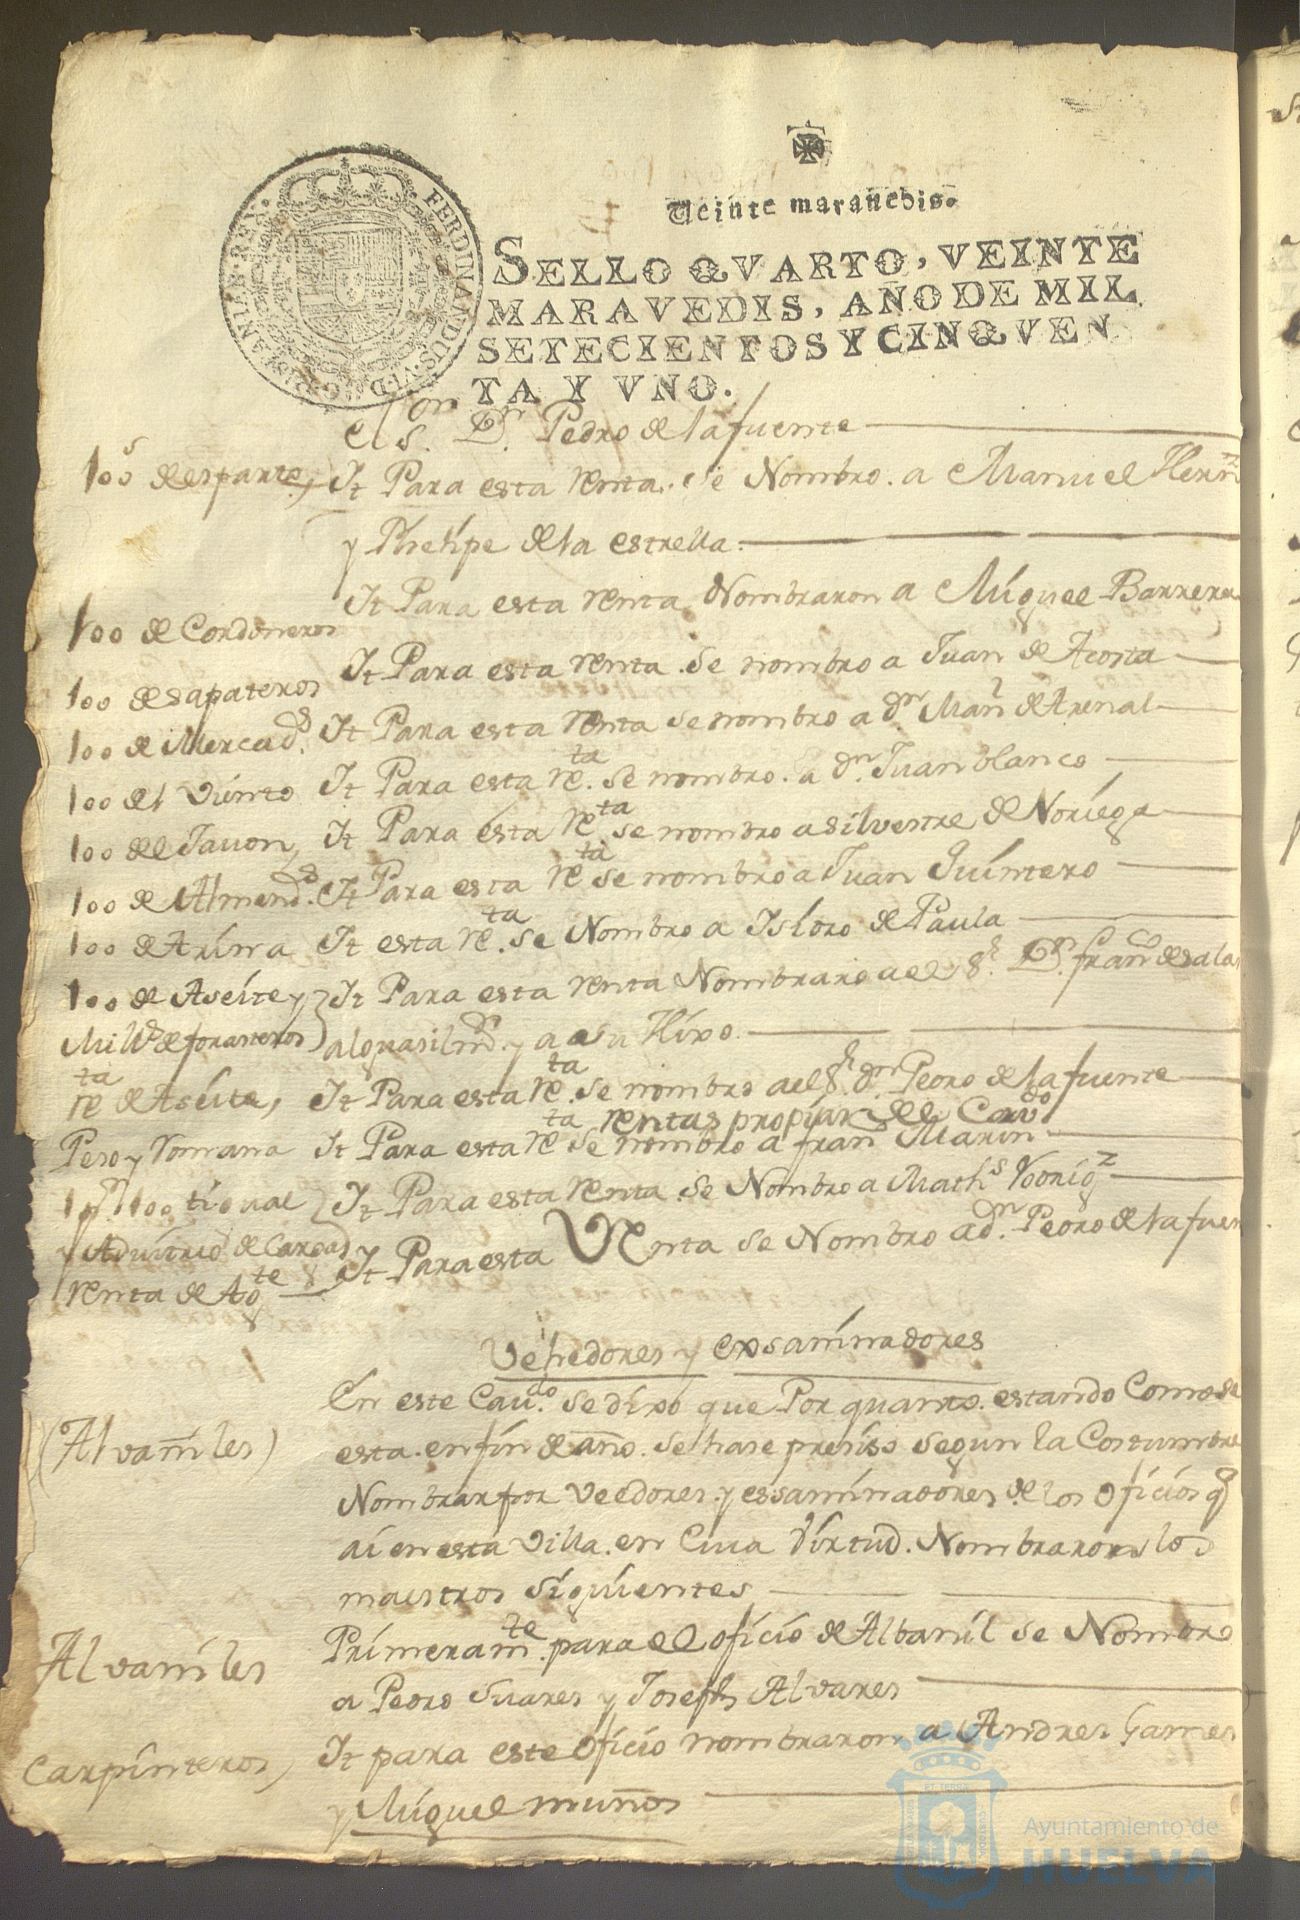 FERDINANDUS·VI·D·G·
HISPANIAN·REX·
Veinte maravedis.
SELLO QVARTO, VEINTE
MARAVEDIS, AÑO DE MIL
SETECIENTOS Y CINQVEN
TA Y VNO.
el S.or D.n Pedro de la fuente
100s de esparto, It Para esta renta. se Nombro. a Manuel Hern.z
y Phelipe de la estrella.
It Para esta renta Nombraron a Miguel Barrera
100 de Cordoneros
It Para esta renta. se nombro a Juan de Acosta
100 de sapateros
100 de Mercad.s It Para esta renta se nombro a dn Man.l de Arenal
100 del viento It Para esta re.ta se nombro. a dn. Juan blanco
100 de Javon, It Para esta re.ta se nombro a silvestre de Noriega
100 de Almend.s It Para esta re.ta se nombro a Juan Quintero
100 de Arina It esta re.ta se Nombro a Isidro de Paula
100 de Aseite y It Para esta renta Nombraro a el S.r D.n fran.co de sala
de forasteros alguasil m.r y a su Hixo.
re.ta de Aseite, It Para esta re.ta se nombro a el S.r dn Pedro de la fuente
rentas propias del Cavdo
Peso y Romana It Para esta re.ta se nombro a fran.co Marin
It Para esta renta se Nombro a Math.s Rodrig.z
y Advitrio de Cargas
It Para esta Renta se Nombro a d.n Pedro de la fuen
renta de Ag.te
Vehedores y exsaminadores
En este Cav.do se dixo que Por quanto. estando Como se
(Alvañiles) esta. en fin de año. se hase presiso segun la Costumbre
Nombrar por Veedores. y essaminadores de los oficios q
ai en esta Villa. en Cuia Virtud. Nombraron los
maestros siguientes
Alvañiles Primeram.te para el oficio de Albañil se Nombro
a Pedro Suares y Joseph Alvares
Carpinteros, It para este oficio nombraron a Andres Games
y Miguel muños
Ayuntamiento de
HUELVA